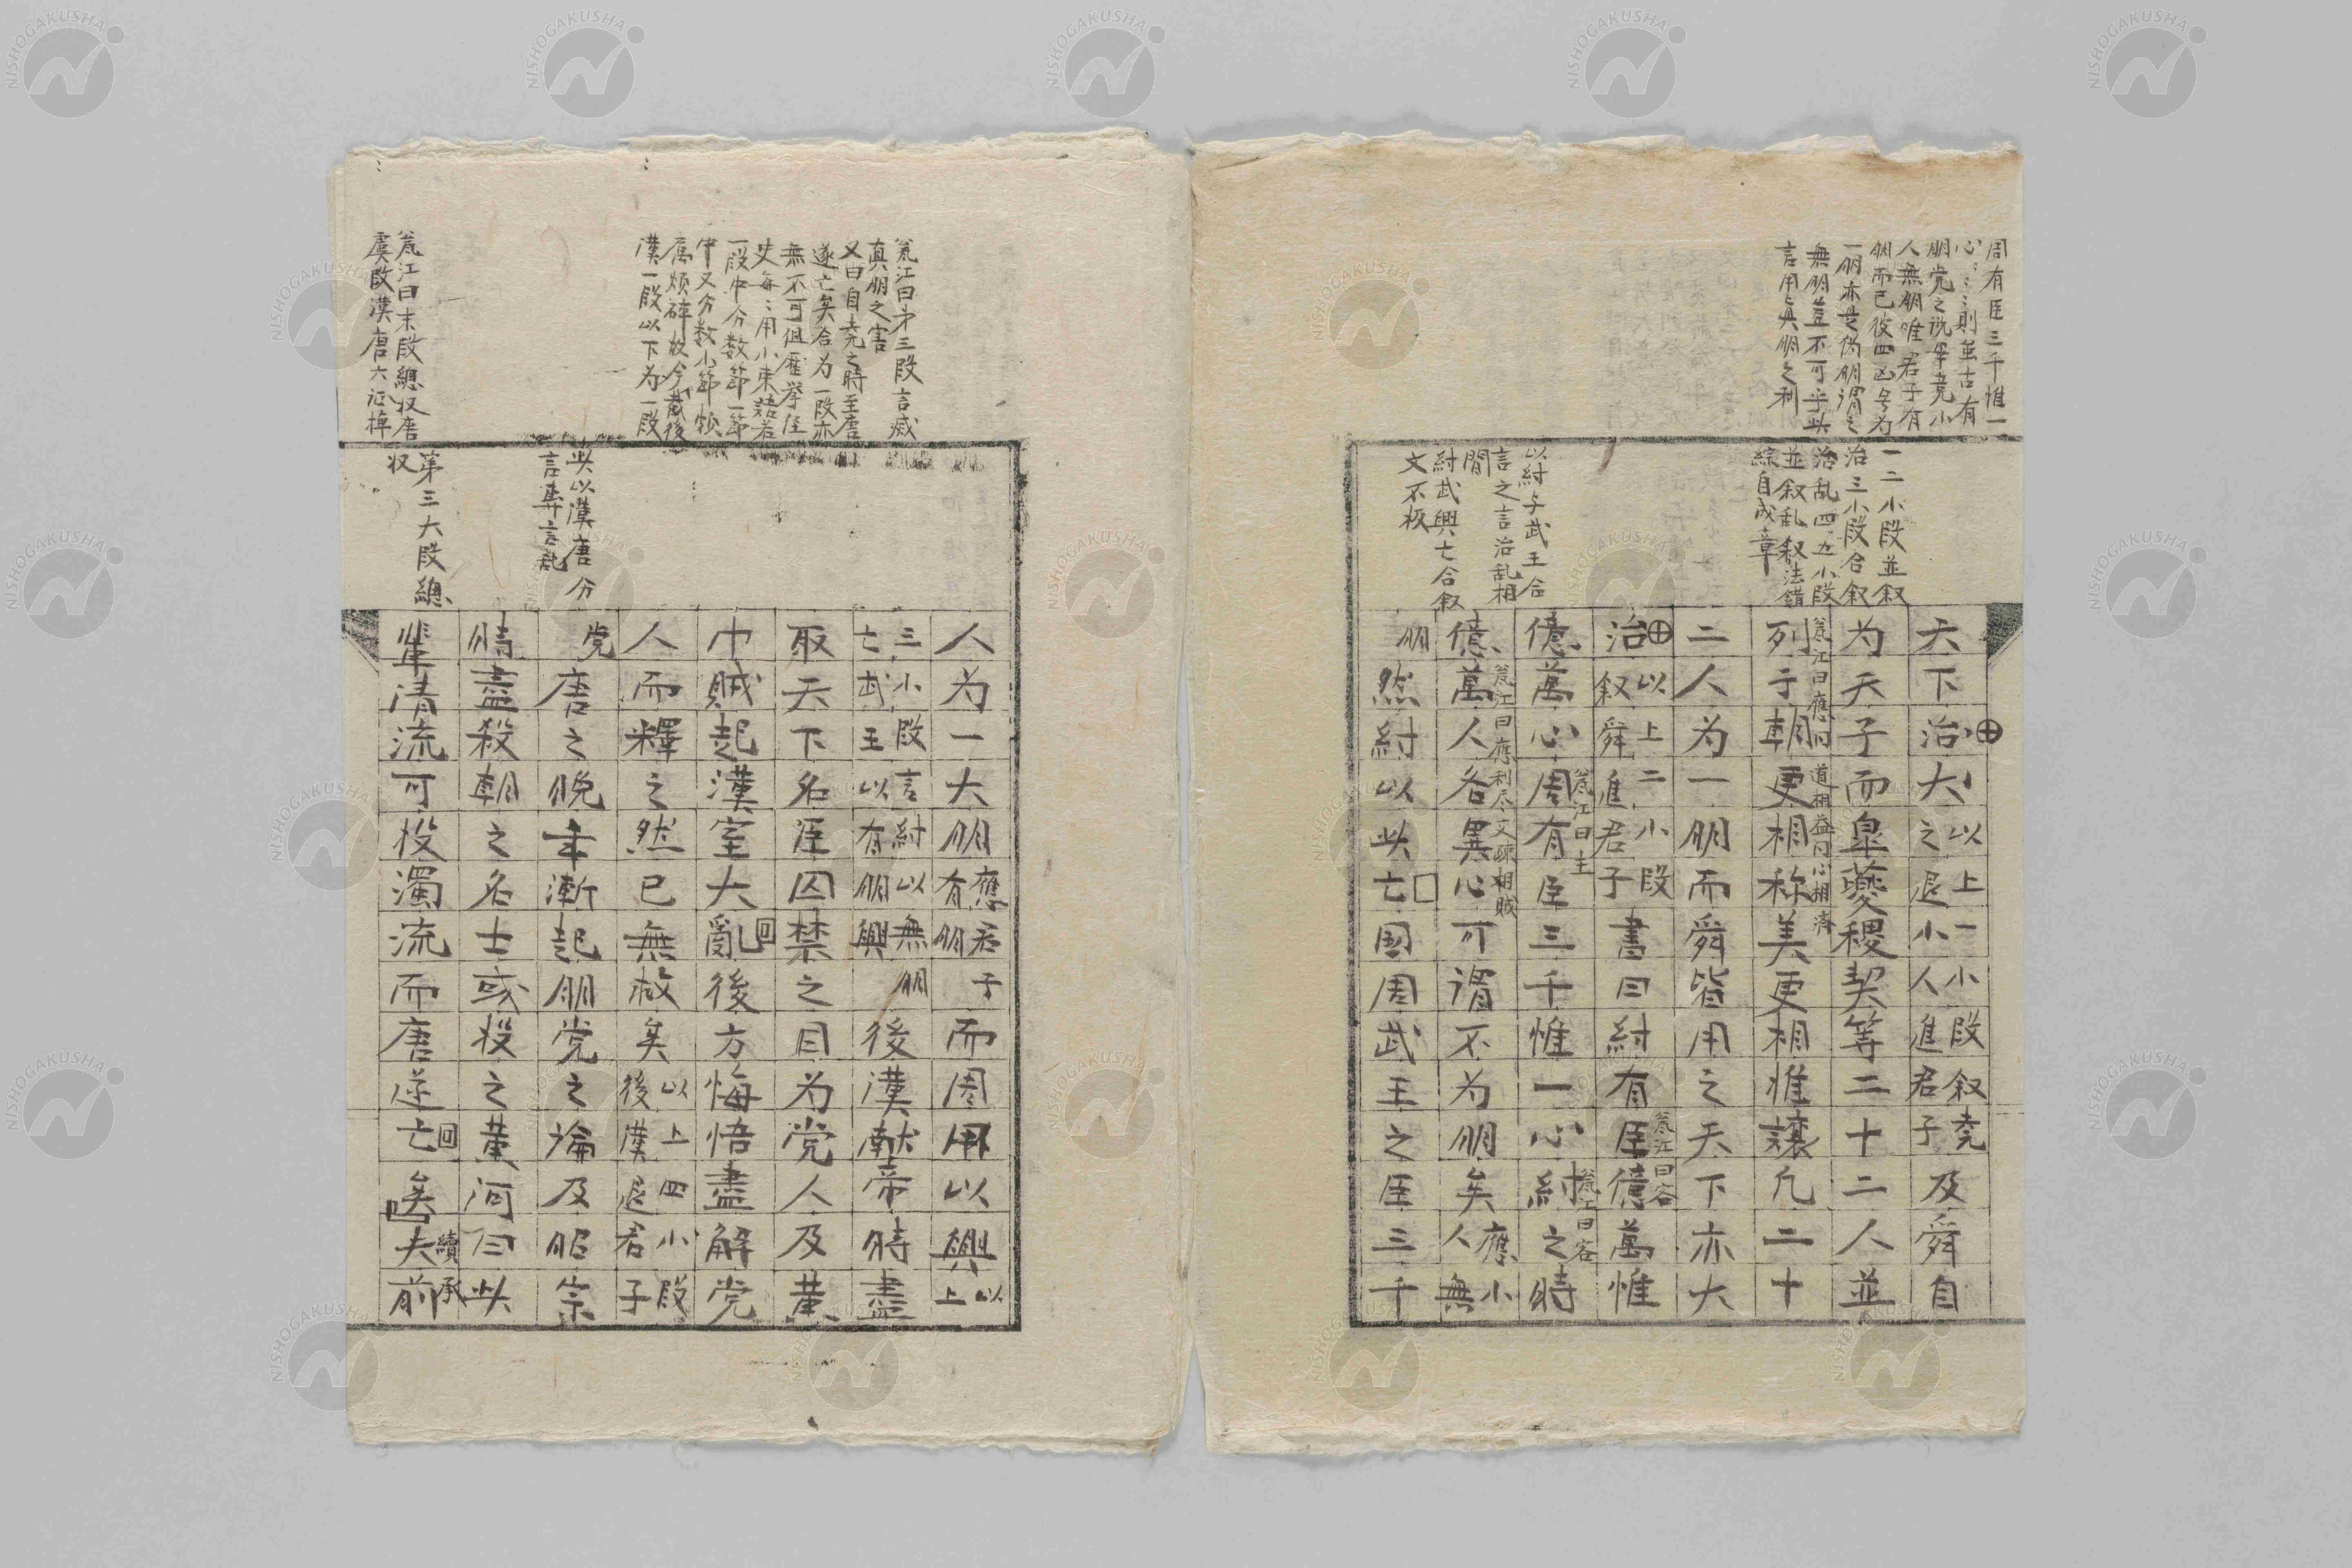 周有臣三千惟一
心〻〻則茧古有
朋党之説畢竟小
人無朋唯君子有
朋而已彼四凶各为
一朋亦是偽朋謂之
無朋豈不可乎此
言用真朋之利
一二小段並叙
治三小段合叙
治乱四五小段
並叙乱叙法錯
綜自成章
以紂与武王合
言之言治乱相
間
紂武興亡合叙
文不板
天下治大以上一小段叙尭之退小人進君子及舜自
为天子而皐夔稷契等二十二人並
甕江曰應同道相益同心相濟
列于朝更相称美更相推譲凢二十
二人为一朋而舜皆用之天下亦大
治以上二小段叙舜進君子書曰紂有臣億萬惟
甕江曰客
億萬心周有臣三千惟一心紂之時
甕江曰主
甕江曰客
億萬人各異心可謂不为朋矣應小人無
甕江曰應利尽交疎相賊
朋然紂以此亡国周武王之臣三千
甕江曰才三段言戚
真朋之害
又曰自尭之時至唐
遂亡矣合为一段亦
無不可但歴挙往
史每〻用小束語若
一段中分数節一節
中又分数小節頗
属煩碎故今截後
漢一段以下为一段
甕江曰末段總収唐
虞殷漢唐六
此以漢唐分
言弊言乱
第三大段總
収
人为一大朋應君子有朋而周用以興以上
三小段言紂以無朋亡武王以有朋興後漢献帝時盡
取天下名臣囚禁之目为党人及黄
巾賊起漢室大亂後方悔悟盡解党
人而釋之然已無救矣以上四小段後漢退君子
党唐之晩年漸起朋党之論及昭宗
時盡殺朝之名士或投之黄河曰此
輩清流可投濁流而唐遂亡矣夫前
續承